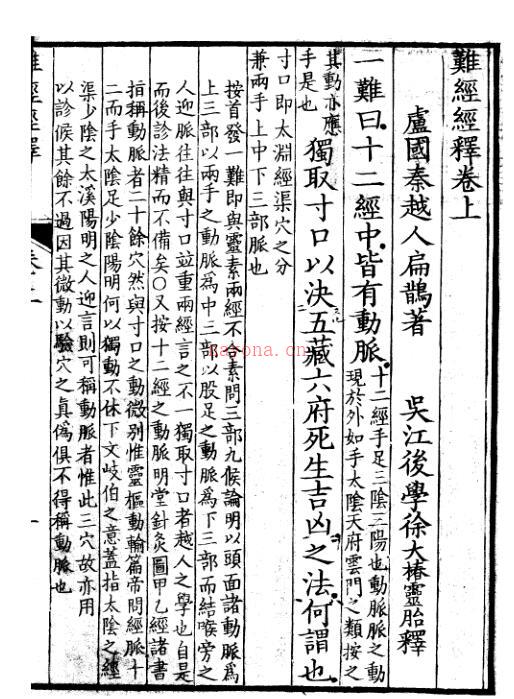 難經經釋卷上
盧國秦越人扁鵲著　吳江後學徐大椿靈胎釋
一難曰十二經中皆有動脈
十二經手足三陰三陽也動脈脈之動
現於外如手太陰天府雲門之類按之
其動亦應
手是也
獨取寸口以決五藏六府死生吉凶之法何謂也
寸口即太淵經渠穴之分
兼兩手上中下三部脈也
按首發一難即與靈素兩經不合素問三部九候論明以頭面諸動脈爲
上三部以兩手之動脈為中三部以股足之動脈爲下三部而結喉旁之
人迎脈往往與寸口竝重兩經言之不一獨取寸口者越人之學也自是
而後診法精而不備矣○又按十二經之動脈明堂針灸圖甲乙經諸書
指稱動脈者二十餘穴然與寸口之動微別惟靈樞動輸篇帝問經脈十
二而手太陰足少陰陽明何以獨動不休下文岐伯之意蓋指太陰之經
渠少陰之太溪陽明之人迎言則可稱動脈者惟此三穴故亦用
以診候其餘不過因其微動以驗穴之真偽俱不得稱動脈也
一